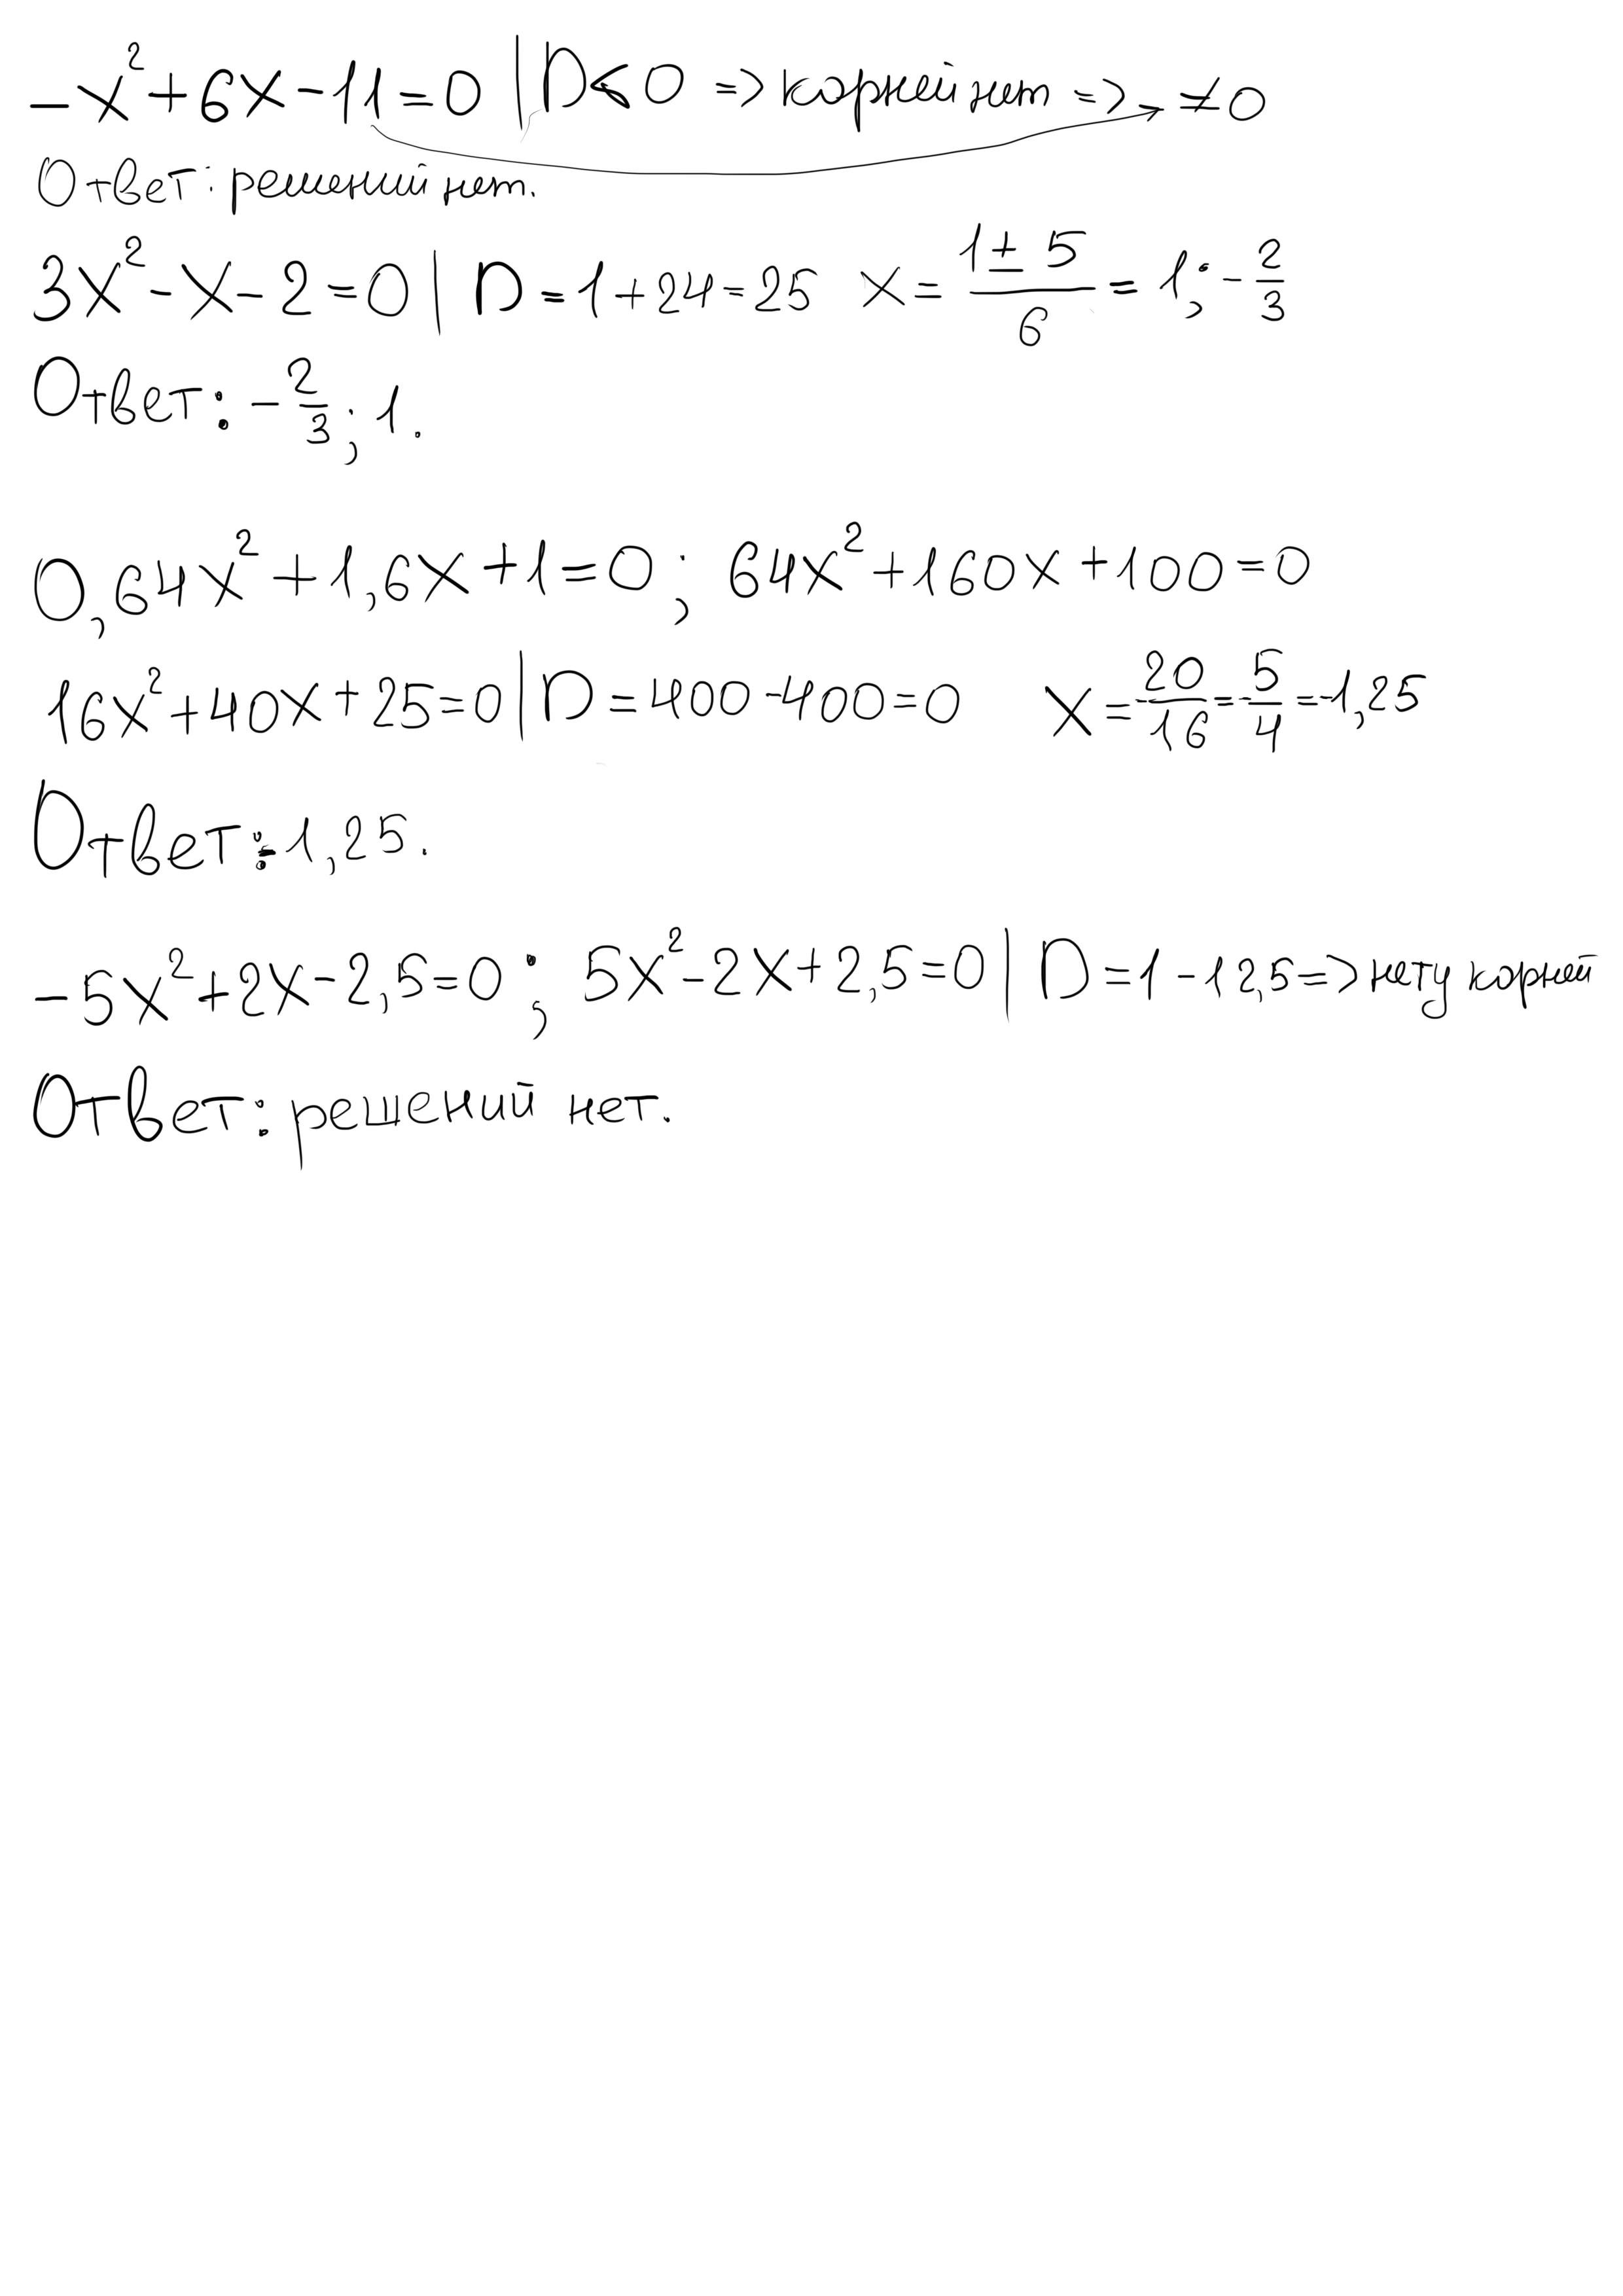 -x²+6x-11=0 | D<0 => корней нет => ≠0
Ответ: решений нет.
3x²-x-2=0 | D=1+24=25 x=(1±5)/6=1;-2/3
Ответ: -2/3; 1.
0,64x²+1,6x+1=0; 64x²+160x+100=0
16x²+40x+25=0 | D=400-400=0 x=-20/16=-5/4=-1,25
Ответ: -1,25.
-5x²+2x-2,5=0; 5x²-2x+2,5=0 | D=1-12,5=> нету корней
Ответ: решений нет.